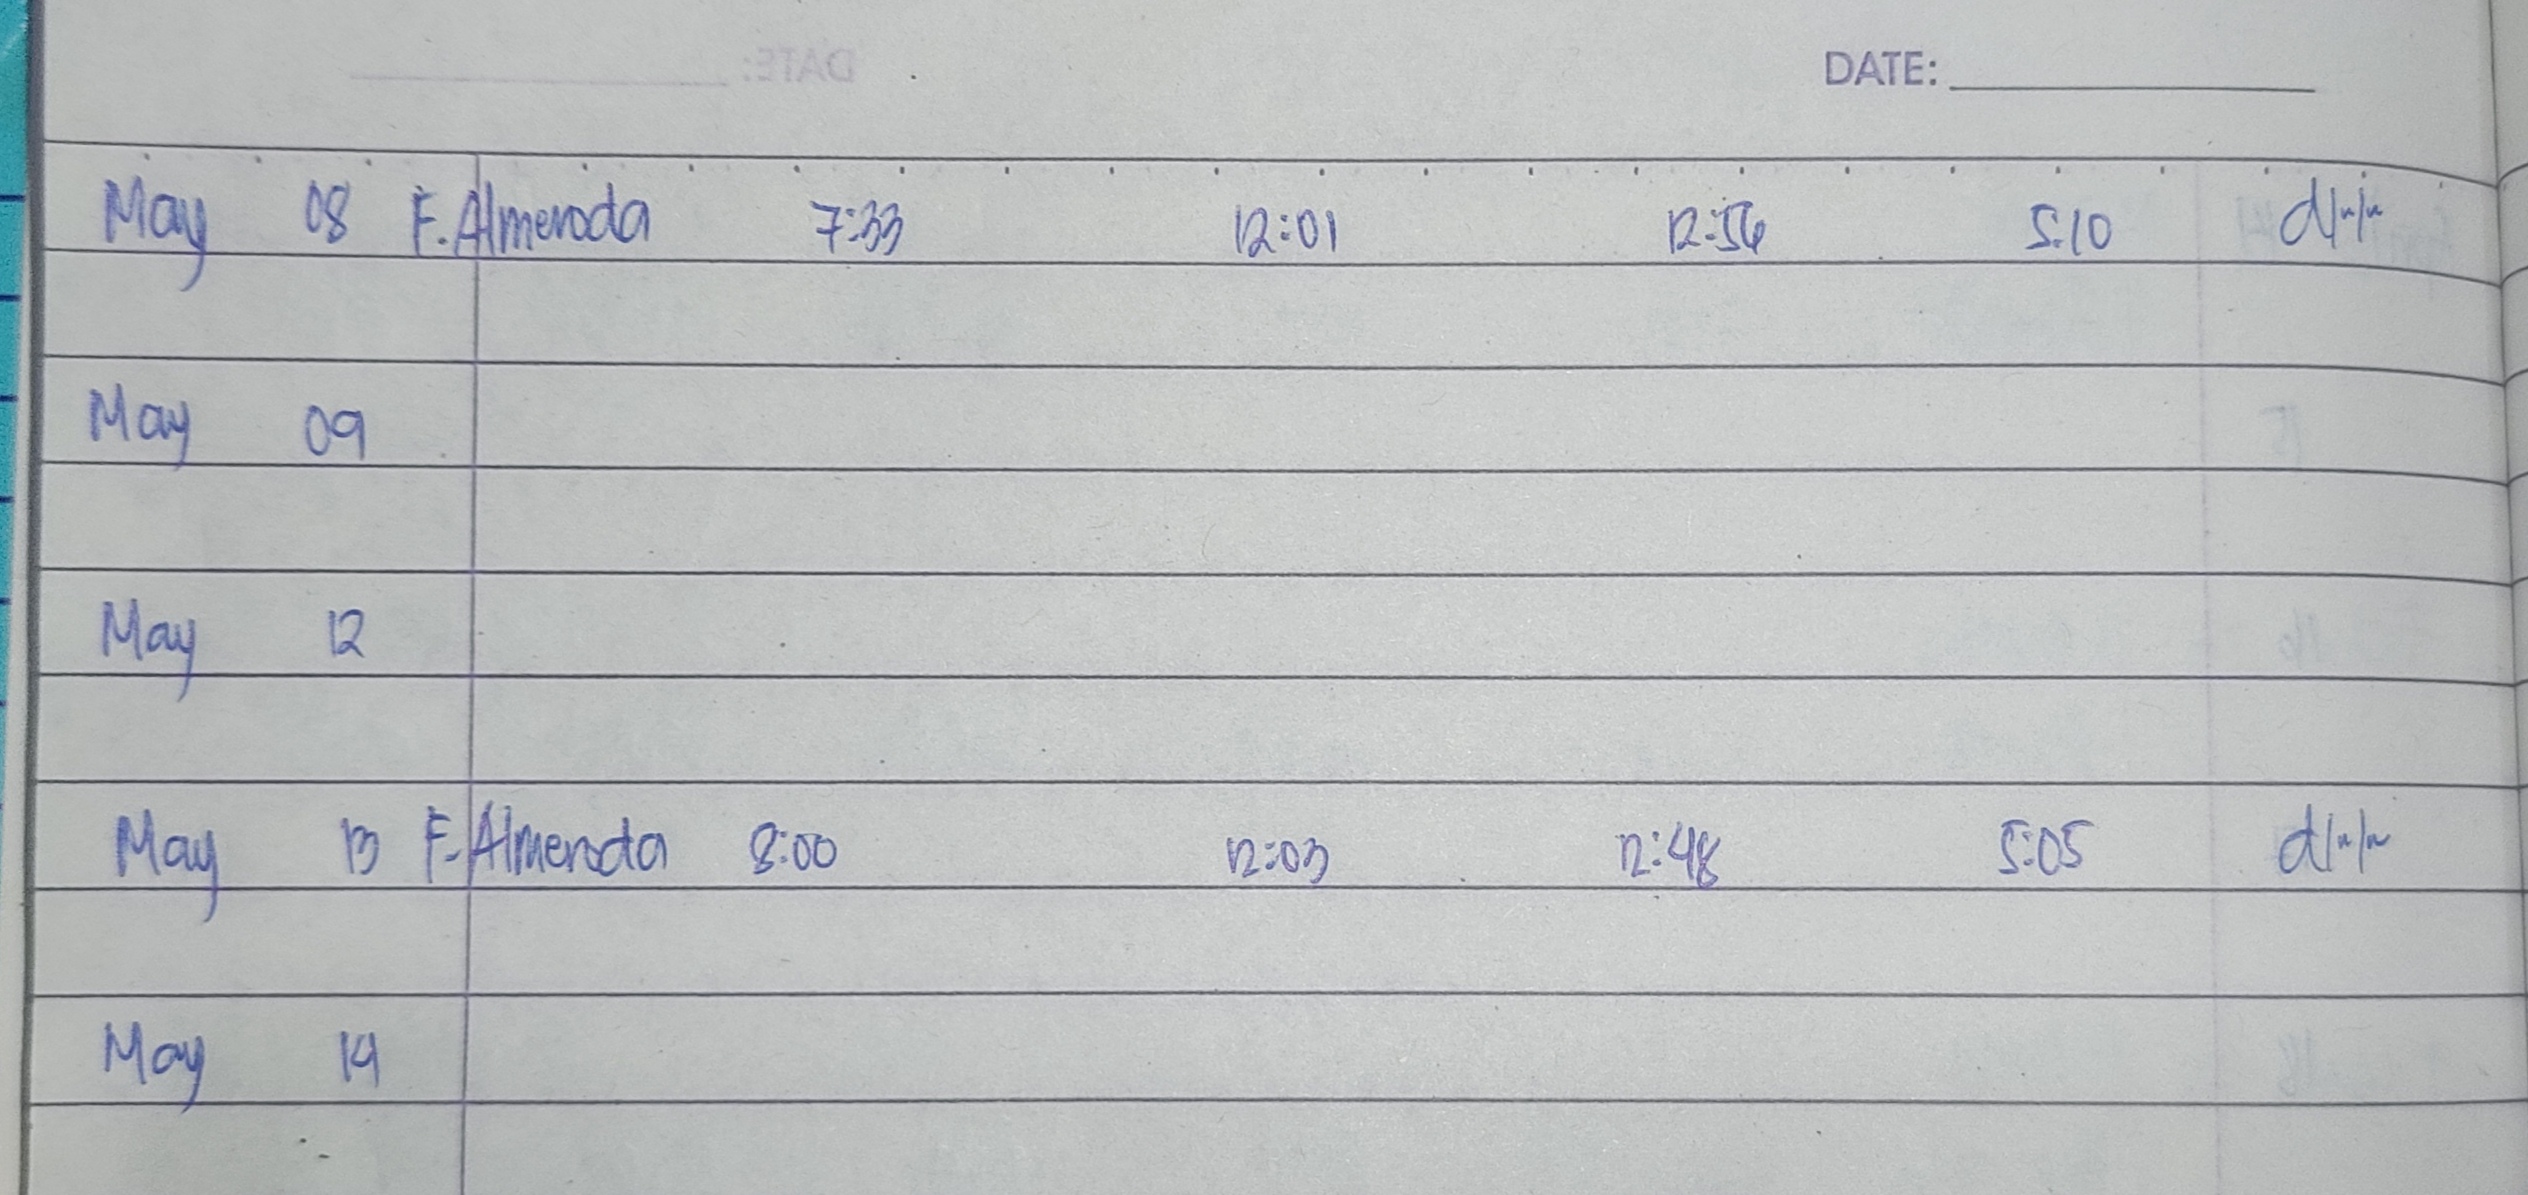 DATE:
May 08 F. Almeroda 7:33 12:01 12:56 5:10
May 09
May 12
May 13 F. Almeroda 8:00 12:03 12:48 5:05
May 14